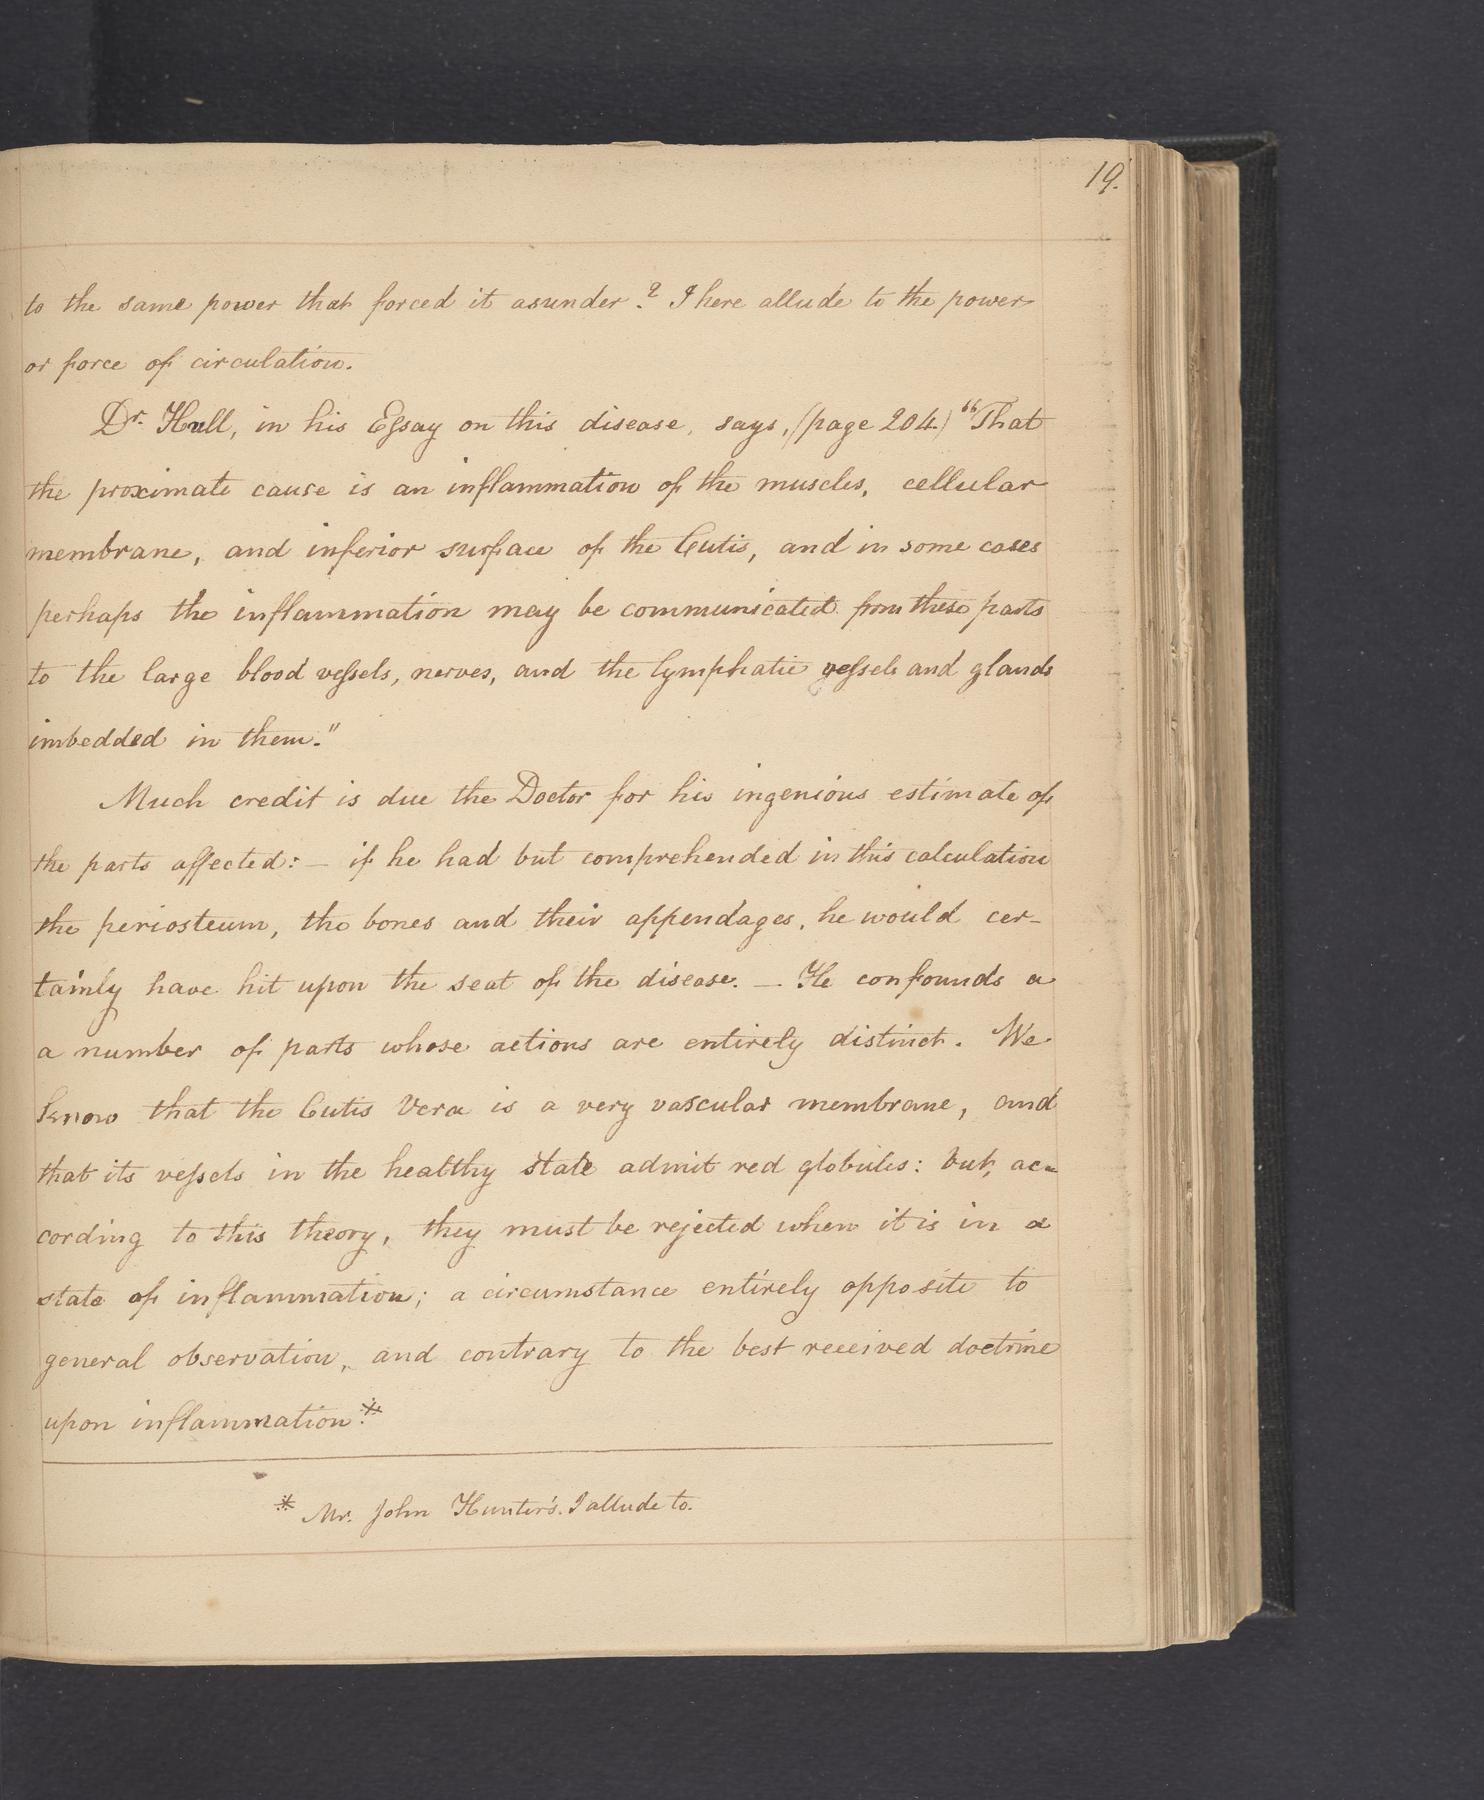 19.
to the same power that forced it asunder? I here allude to the power
or force of circulation.
Dr. Hull, in his Essay on this disease, says, (page 204.) "That
the proximate cause is an inflammation of the muscles, cellular
membrane, and inferior surface of the Cutis, and in some cases
perhaps the inflammation may be communicated from these parts
to the large blood vessels, nerves, and the lymphatic vessels and glands
imbedded in them."
Much credit is due the Doctor for his ingenious estimate of
the parts affected: — if he had but comprehended in this calculation
the periosteum, the bones and their appendages, he would cer-
tainly have hit upon the seat of the disease. — He confounds a
a number of parts whose actions are entirely distinct. We
know that the Cutis Vera is a very vascular membrane, and
that its vessels in the healthy state admit red globules: but, ac-
cording to this theory, they must be rejected when it is in a
state of inflammation; a circumstance entirely opposite to
general observation, and contrary to the best received doctrine
upon inflammation.*
* Mr. John Hunter's. I allude to.